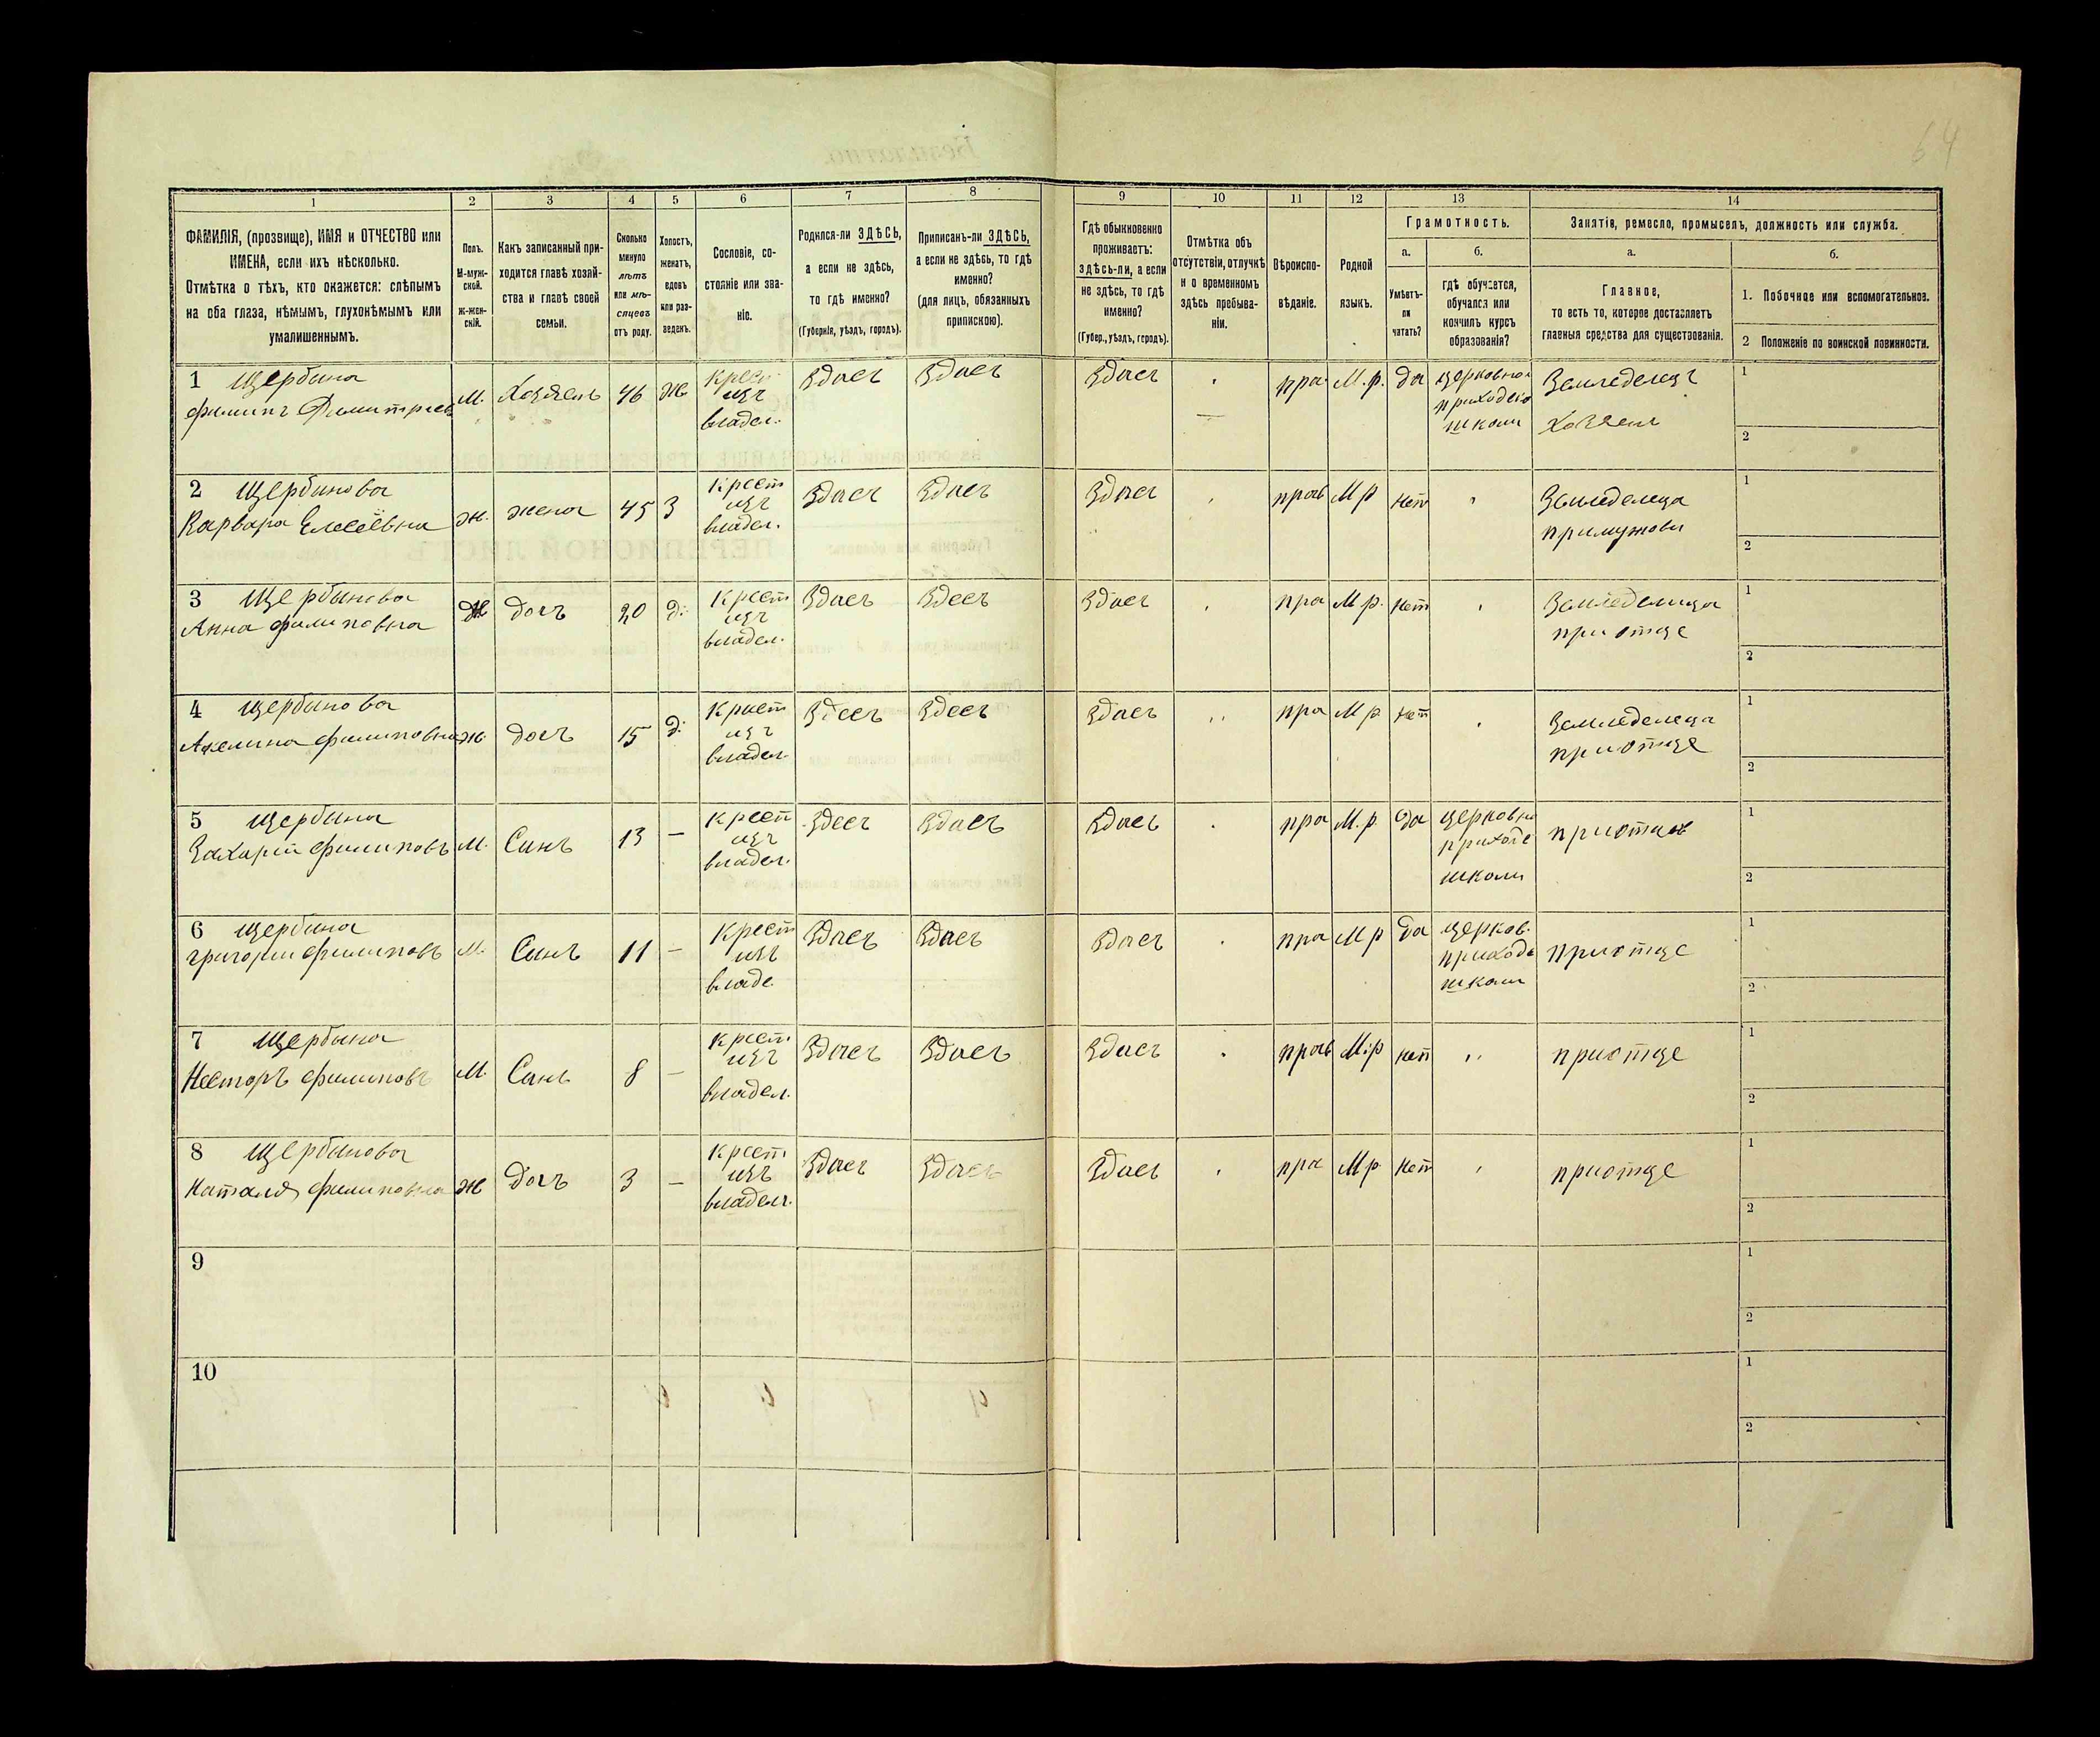 64
1 2 3 4 5 6 7 8 9 10 11 12 13 14
ФАМИЛІЯ, (прозвище), ИМЯ и ОТЧЕСТВО или
ИМЕНА, если ихъ нѣсколько.
Отмѣтка о тѣхъ, кто окажется: слѣпымъ
на оба глаза, нѣмымъ, глухонѣмымъ или
умалишеннымъ.
Полъ.
М-муж-
ской.
Ж-жен-
скій.
Какъ записанный при-
ходится главѣ хозяй-
ства и главѣ своей
семьи.
Сколько
минуло
лѣтъ
или мѣ-
сяцевъ
отъ роду.
Холостъ,
женатъ,
вдовъ
или раз-
веденъ.
Сословіе, со-
стояніе или зва-
ніе.
Родился-ли ЗДѢСЬ,
а если не здѣсь,
то гдѣ именно?
(Губернія, уѣздъ, городъ).
Приписанъ-ли ЗДѢСЬ,
а если не здѣсь, то гдѣ
именно?
(для лицъ, обязанныхъ
припискою).
Гдѣ обыкновенно
проживаетъ:
здѣсь-ли, а если
не здѣсь, то гдѣ
именно?
(Губер., уѣздъ, городъ).
Отмѣтка объ
отсутствіи, отлучкѣ
и о временномъ
здѣсь пребыва-
ніи.
Вѣроиспо-
вѣданіе.
Родной
языкъ.
Грамотность.
а.
Умѣетъ-
ли
читать?
б.
гдѣ обучается,
обучался или
кончилъ курсъ
образованія?
Занятія, ремесло, промыселъ, должность или служба.
а.
Главное,
то есть то, которое доставляетъ
главныя средства для существованія.
б.
1. Побочное или вспомогательное.
2 Положеніе по воинской повинности.
1 Щербина
филипъ Димитриев М. Хозяен 46 Ж Крест изъ владел. Здаеъ Здаеъ Здаеъ пра М.р. да церковно приходско школи Земледелецъ Хозяен 1 2
2 Щербинова
Варвара Елесеевна ж. жена 45 З Крест изъ владел. Здаеъ Здаеъ Здаеъ прав М р нет Земледелеца примужови 1 2
3 Щербинова
Анна филиповна Ж дочъ 20 д. Крест изъ владел. Здаеъ Здееъ Здаеъ пра М р. нет Земледелица приотце 1 2
4 Щербинова
Акелина филиповна ж. дочъ 15 д. Крест изъ владел. Здееъ Здееъ Здаеъ пра М р. нет Земледелеца приотце 1 2
5 Щербина
Захарій филиповъ М. Синъ 13 — Крест изъ владел. Здееъ Здаеъ Здаеъ пра М.р. да церковно приходс школи приотцы 1 2
6 Щербина
григории филиповъ М. Синъ 11 — Крест изъ владе. Здаеъ Здаеъ Здаеъ пра М р да церков. приходс школи приотце 1 2
7 Щербина
Несторъ филиповъ М. Синъ 8 — Крест изъ владел. Здаеъ Здаеъ Здаеъ прав М:р нет приотце 1 2
8 Щербинова
Наталя филиповна Ж дочъ 3 — Крест изъ владел. Здаеъ Здаеъ Здаеъ пра М р. нет приотце 1 2
9 1 2
10 1 2